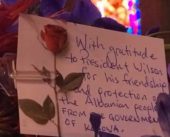 With gratitude
to President Wilson
for his friendship
and protection of
the Albanian people
FROM the GOVERNMENT
OF KOSOVA.